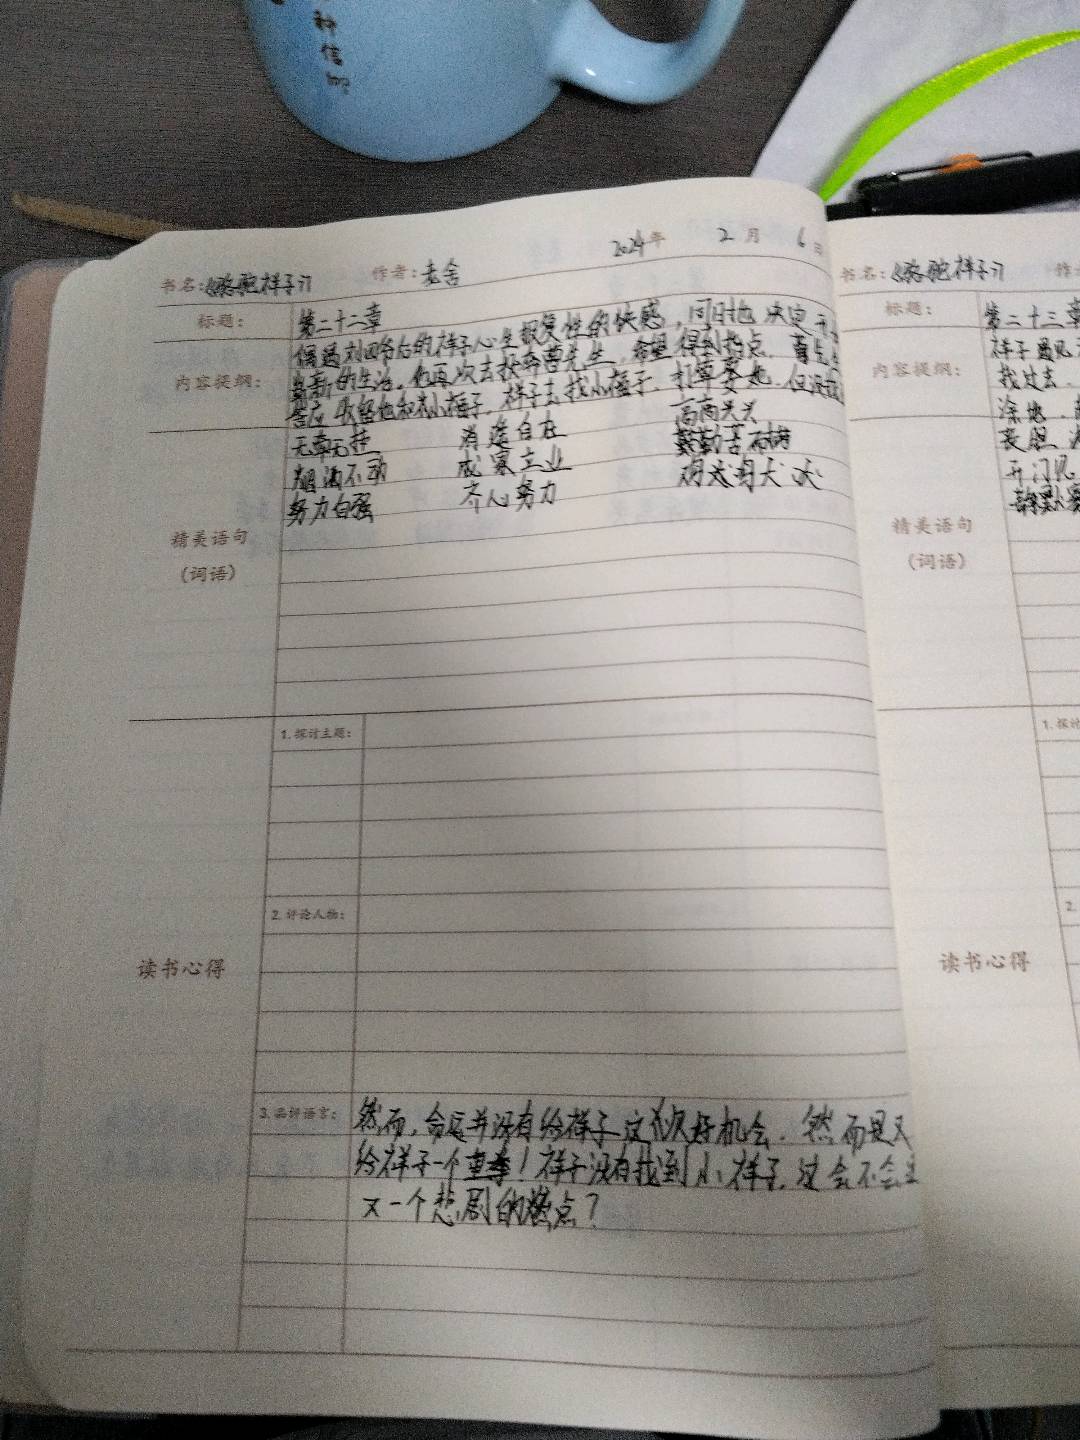 种信仰
2024年 2月 6日
书名:《骆驼祥子》 作者:老舍
标题: 第二十二章
内容提纲:
偶遇刘四爷后的祥子心生报复性的快感,同时他决定开
的生活。他再次去投奔曹先生,希望得到指点。曹先生
答应收留他和小福子。祥子去找小福子,打算娶她,但没找
无牵无挂 逍遥自在 高高兴兴
纹丝不动 成家立业 勤苦耐
努力自强 齐心努力
精美语句
(词语)
读书心得
1.探讨主题:
2.评论人物:
3.品评语言: 然而,命运并没有给祥子这次好机会。然而是又
给祥子一个重拳!祥子没有找到小祥子,这会不会
又一个悲剧的点?
书名:《骆驼祥子》 作
标题: 第二十三章
内容提纲:
祥子遇见
找过去。
丧胆
开门见
精美语句
(词语)
读书心得
1.探讨
2.